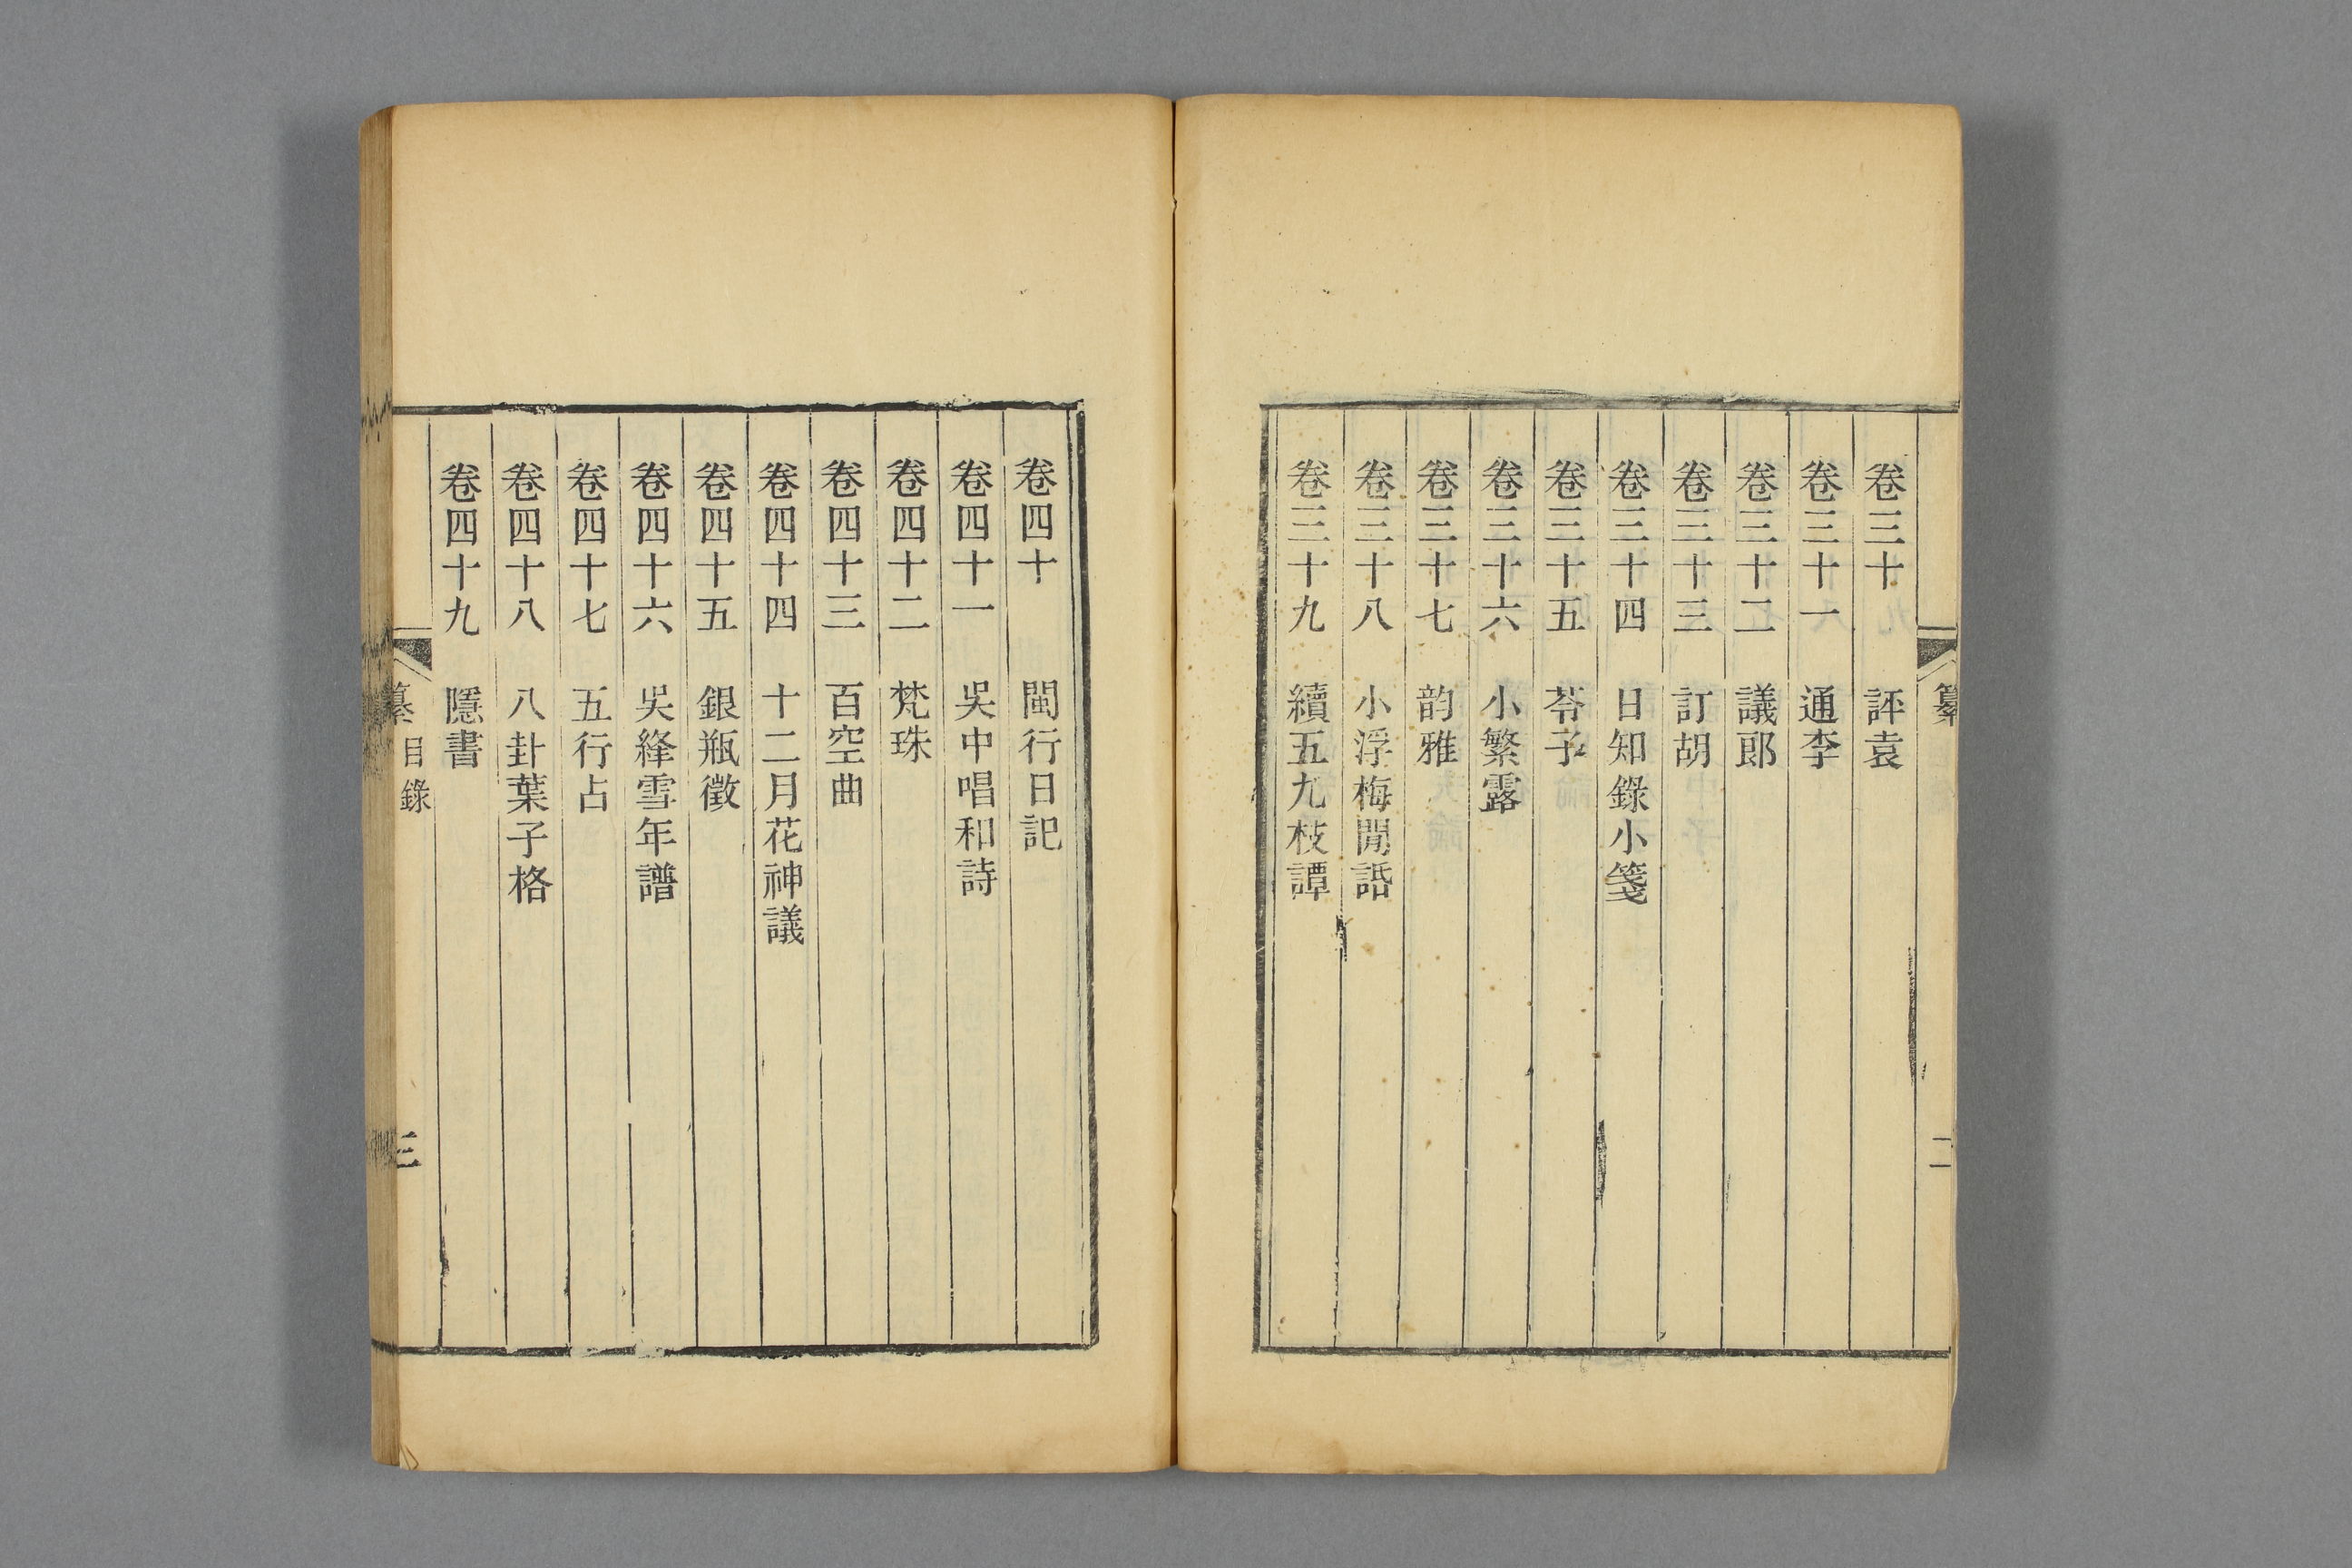 纂
二
卷三十 評袁
卷三十一 通李
卷三十二 議郎
卷三十三 訂胡
卷三十四 日知錄小箋
卷三十五 荅子
卷三十六 小繁露
卷三十七 韵雅
卷三十八 小浮梅閒話
卷三十九 續五九枝譚
卷四十 閩行日記
卷四十一 吳中唱和詩
卷四十二 梵珠
卷四十三 百空曲
卷四十四 十二月花神議
卷四十五 銀瓶徵
卷四十六 吳絳雪年譜
卷四十七 五行占
卷四十八 八卦葉子格
卷四十九 隱書
纂 目錄
三